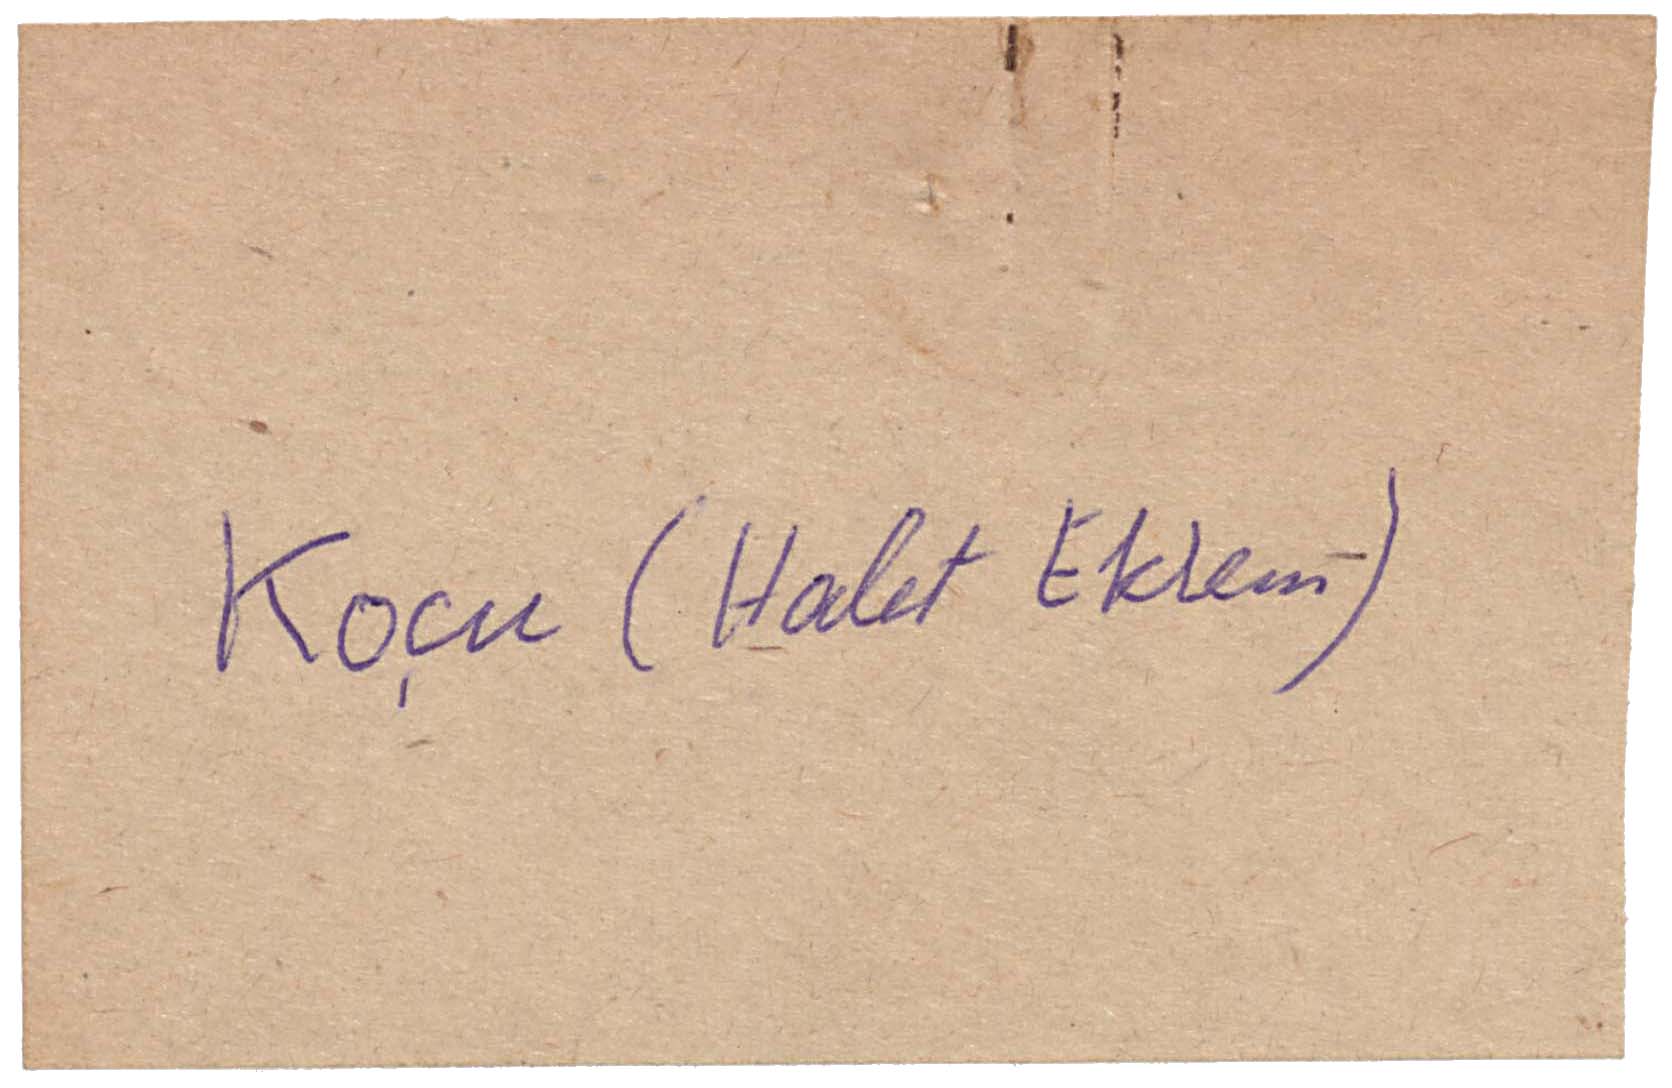 Koçu (Halet Ekrem)